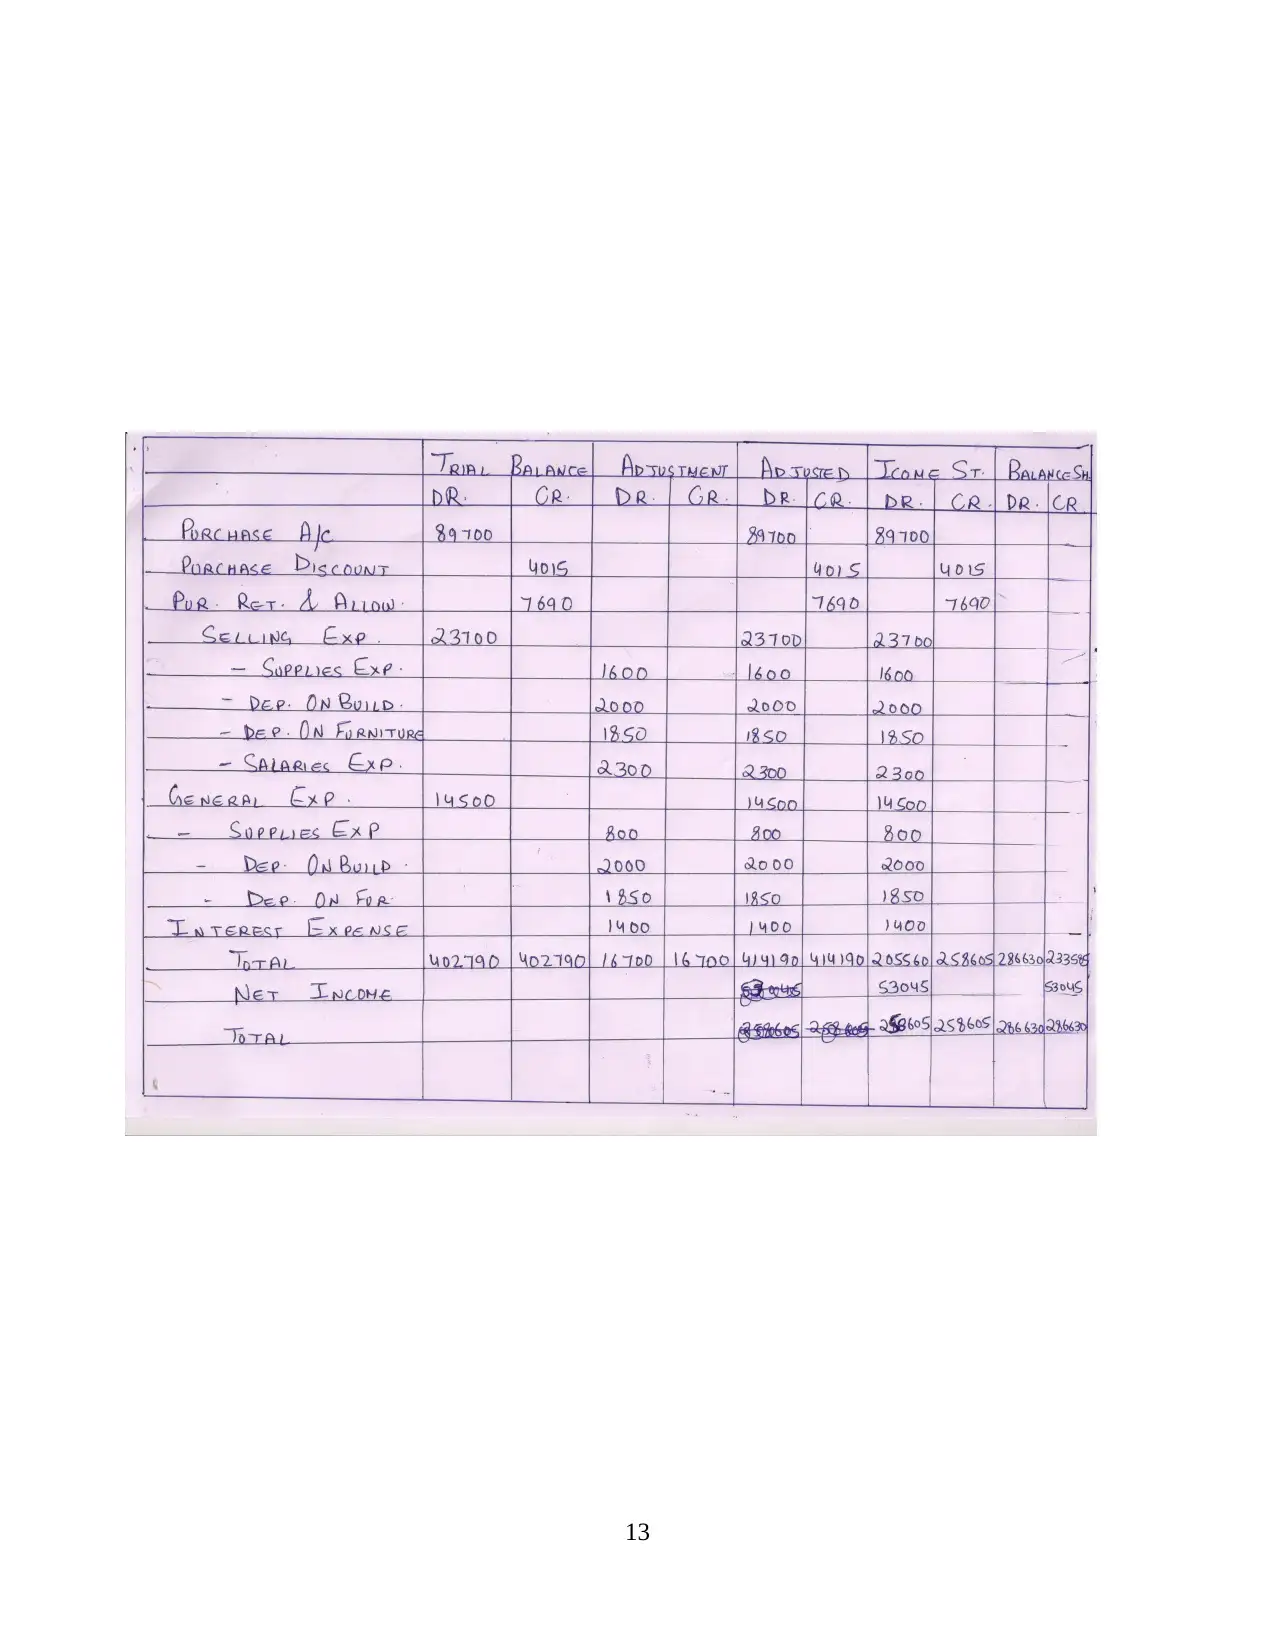 TRIAL BALANCE ADJUSTMENT ADJUSTED ICOME ST. BALANCE SH
DR. CR. DR. CR. DR. CR. DR. CR. DR. CR
PURCHASE A/C 89700 89700 89700
PURCHASE DISCOUNT 4015 4015 4015
PUR. RET. & ALLOW. 7690 7690 7690
SELLING EXP. 23700 23700 23700
- SUPPLIES EXP. 1600 1600 1600
- DEP. ON BUILD. 2000 2000 2000
- DEP. ON FURNITURE 1850 1850 1850
- SALARIES EXP. 2300 2300 2300
GENERAL EXP. 14500 14500 14500
- SUPPLIES EXP 800 800 800
- DEP. ON BUILD. 2000 2000 2000
- DEP. ON FUR. 1850 1850 1850
INTEREST EXPENSE 1400 1400 1400
TOTAL 402790 402790 16700 16700 414190 414190 205560 258605 286630 233585
NET INCOME 53045 53045
TOTAL 258605 258605 286630 286630
13